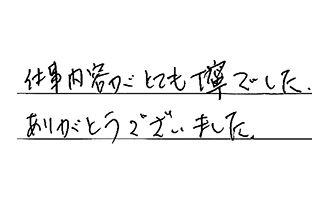 仕事内容がとても丁寧でした.
ありがとうございました.